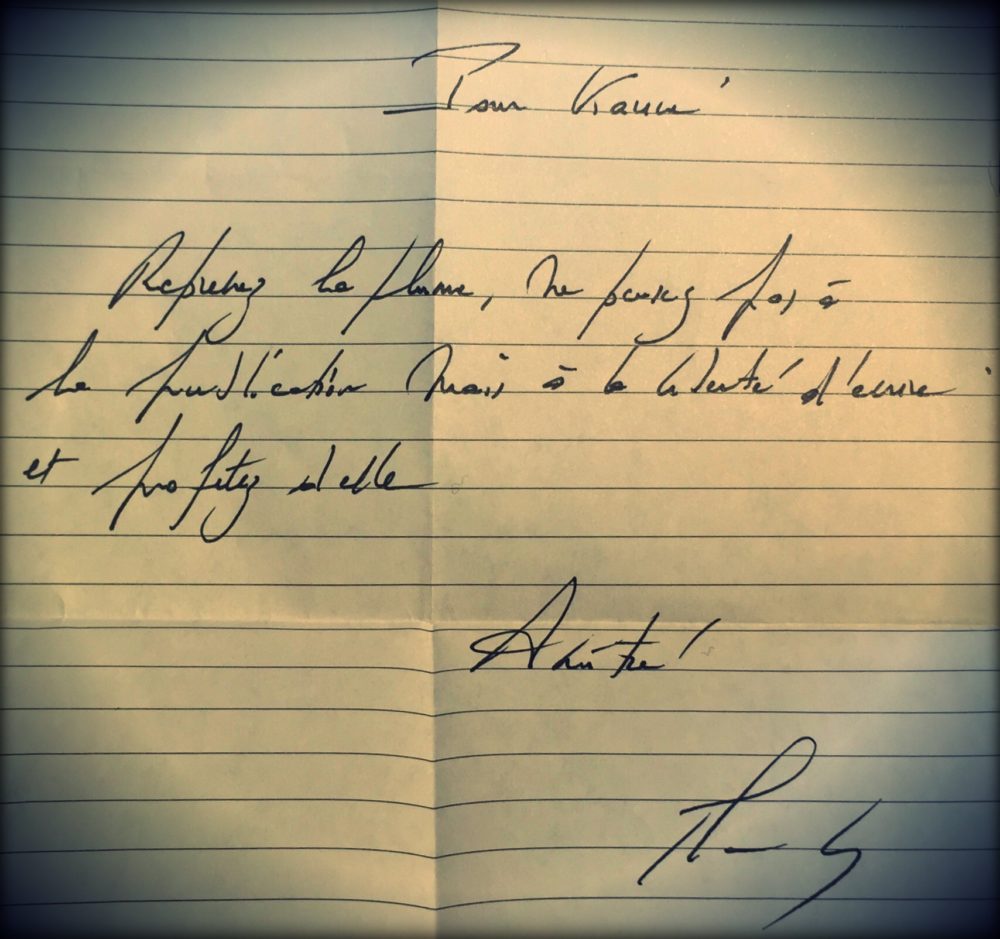 Pour
Reprenez la plume, ne pensez pas à
la publication mais à la liberté d'écrire
et profitez d'elle
Amitié